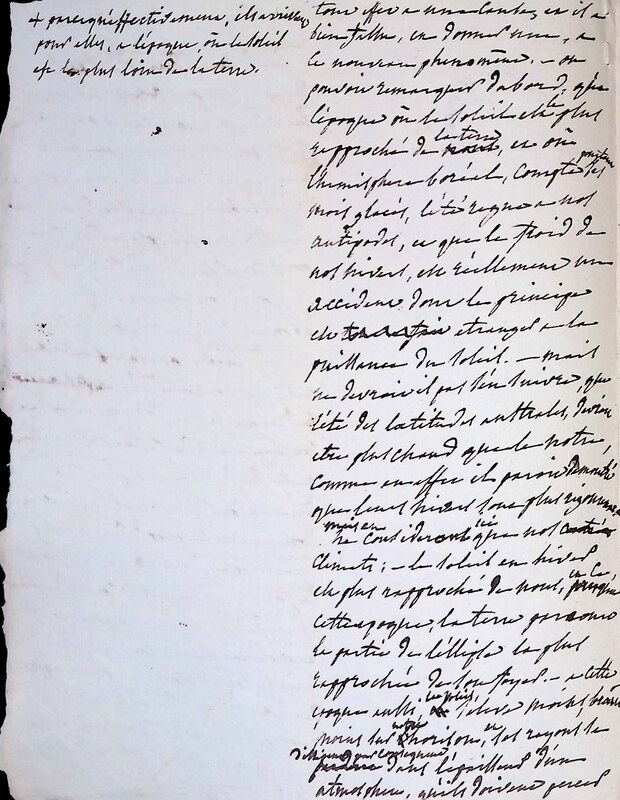 + puisqu'effectivement, ils arrivent
pour elles, a l'epoque, où le soleil
est le plus loin de la terre.
tout effet a une cause, et il a
bien fallu, en donner une, a
ce nouveau phenomène. — on
pouvoit remarquer d'abord, que
l'époque où le soleil est le plus
rapproché de la terre, et où
l'hemisphere boréal, compte ses
mois glacés, l'été regne a nos
antipodes, et que le froid de
nos hivers, est réellement un
accident dont le principe
est etranger a la
puissance du soleil. — mais
ne devroit il pas s'en suivre, que
l'été des latitudes australes, devroit
etre plus chaud que le notre,
comme en effet il paroit demontré
que leurs hivers sont plus rigoureux
mais en ne considerant ici que nos
climats; — le soleil en hiver
est plus rapproché de nous, en ce,
cette epoque, la terre parcourt
la partie de l'éllipse la plus
rapprochée de son foyer. — a cette
epoque aussi, le soleil s'éleve moins,
moins sur notre horison, et ses rayons se
dans l'épaisseur d'un
atmosphere, qu'ils doivent percer